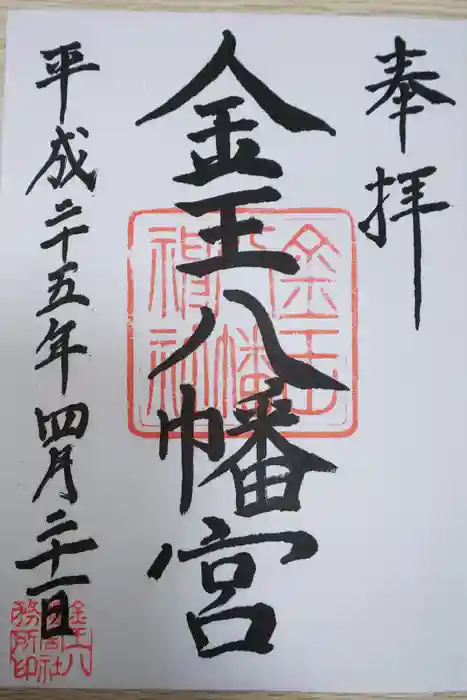 奉拝
金王八幡宮
金王八幡神社
平成二十五年四月二十一日
金王八
社
務所印